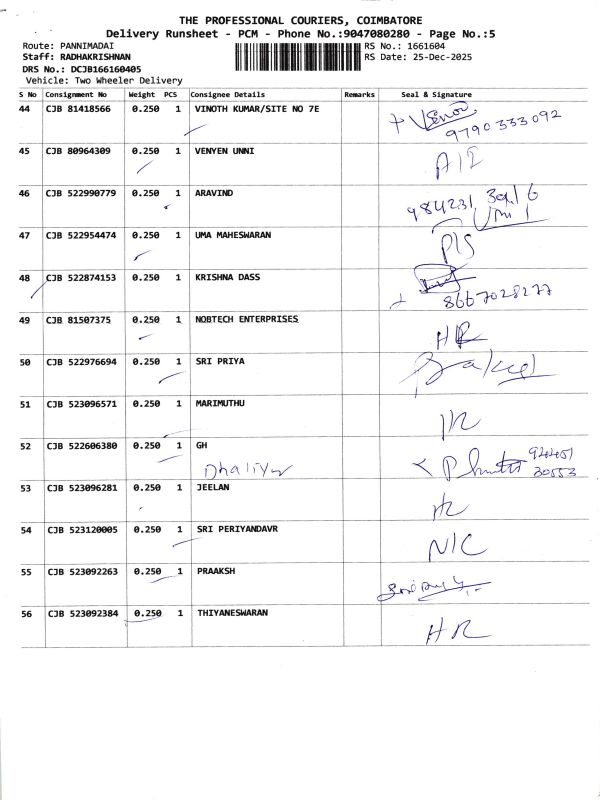 THE PROFESSIONAL COURIERS, COIMBATORE
Delivery Runsheet - PCM - Phone No.:9047080280 - Page No.:5
Route: PANNIMADAI
RS No.: 1661604
Staff: RADHAKRISHNAN
RS Date: 25-Dec-2025
DRS No.: DCJB166160405
Vehicle: Two Wheeler Delivery
S No Consignment No Weight PCS Consignee Details Remarks Seal & Signature
44 CJB 81418566 0.250 1 VINOTH KUMAR/SITE NO 7E
9790333092
45 CJB 80964309 0.250 1 VENYEN UNNI
46 CJB 522990779 0.250 1 ARAVIND
47 CJB 522954474 0.250 1 UMA MAHESWARAN
48 CJB 522874153 0.250 1 KRISHNA DASS
8667028277
49 CJB 81507375 0.250 1 NOBTECH ENTERPRISES
50 CJB 522976694 0.250 1 SRI PRIYA
51 CJB 523096571 0.250 1 MARIMUTHU
52 CJB 522606380 0.250 1 GH
53 CJB 523096281 0.250 1 JEELAN
54 CJB 523120005 0.250 1 SRI PERIYANDAVR
N/C
55 CJB 523092263 0.250 1 PRAAKSH
56 CJB 523092384 0.250 1 THIYANESWARAN